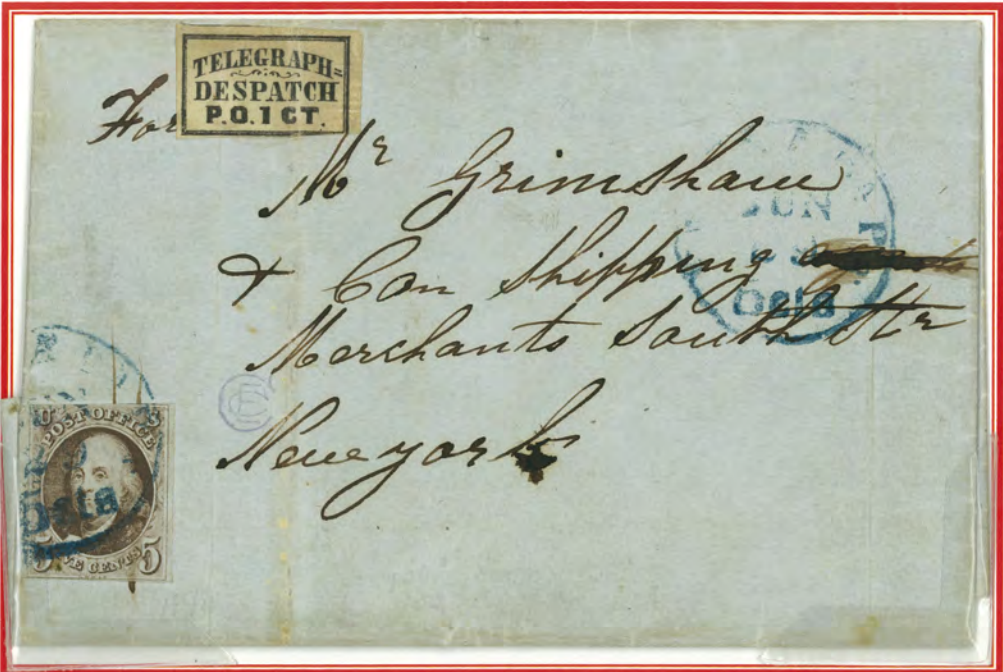 TELEGRAPH=
DESPATCH
P.O. 1 CT.
For
Mr Grimshaw
& Com Shipping
Merchants South Str
New york
JUN
5cts
U S
POST OFFICE
5cts
FIVE CENTS
5 5